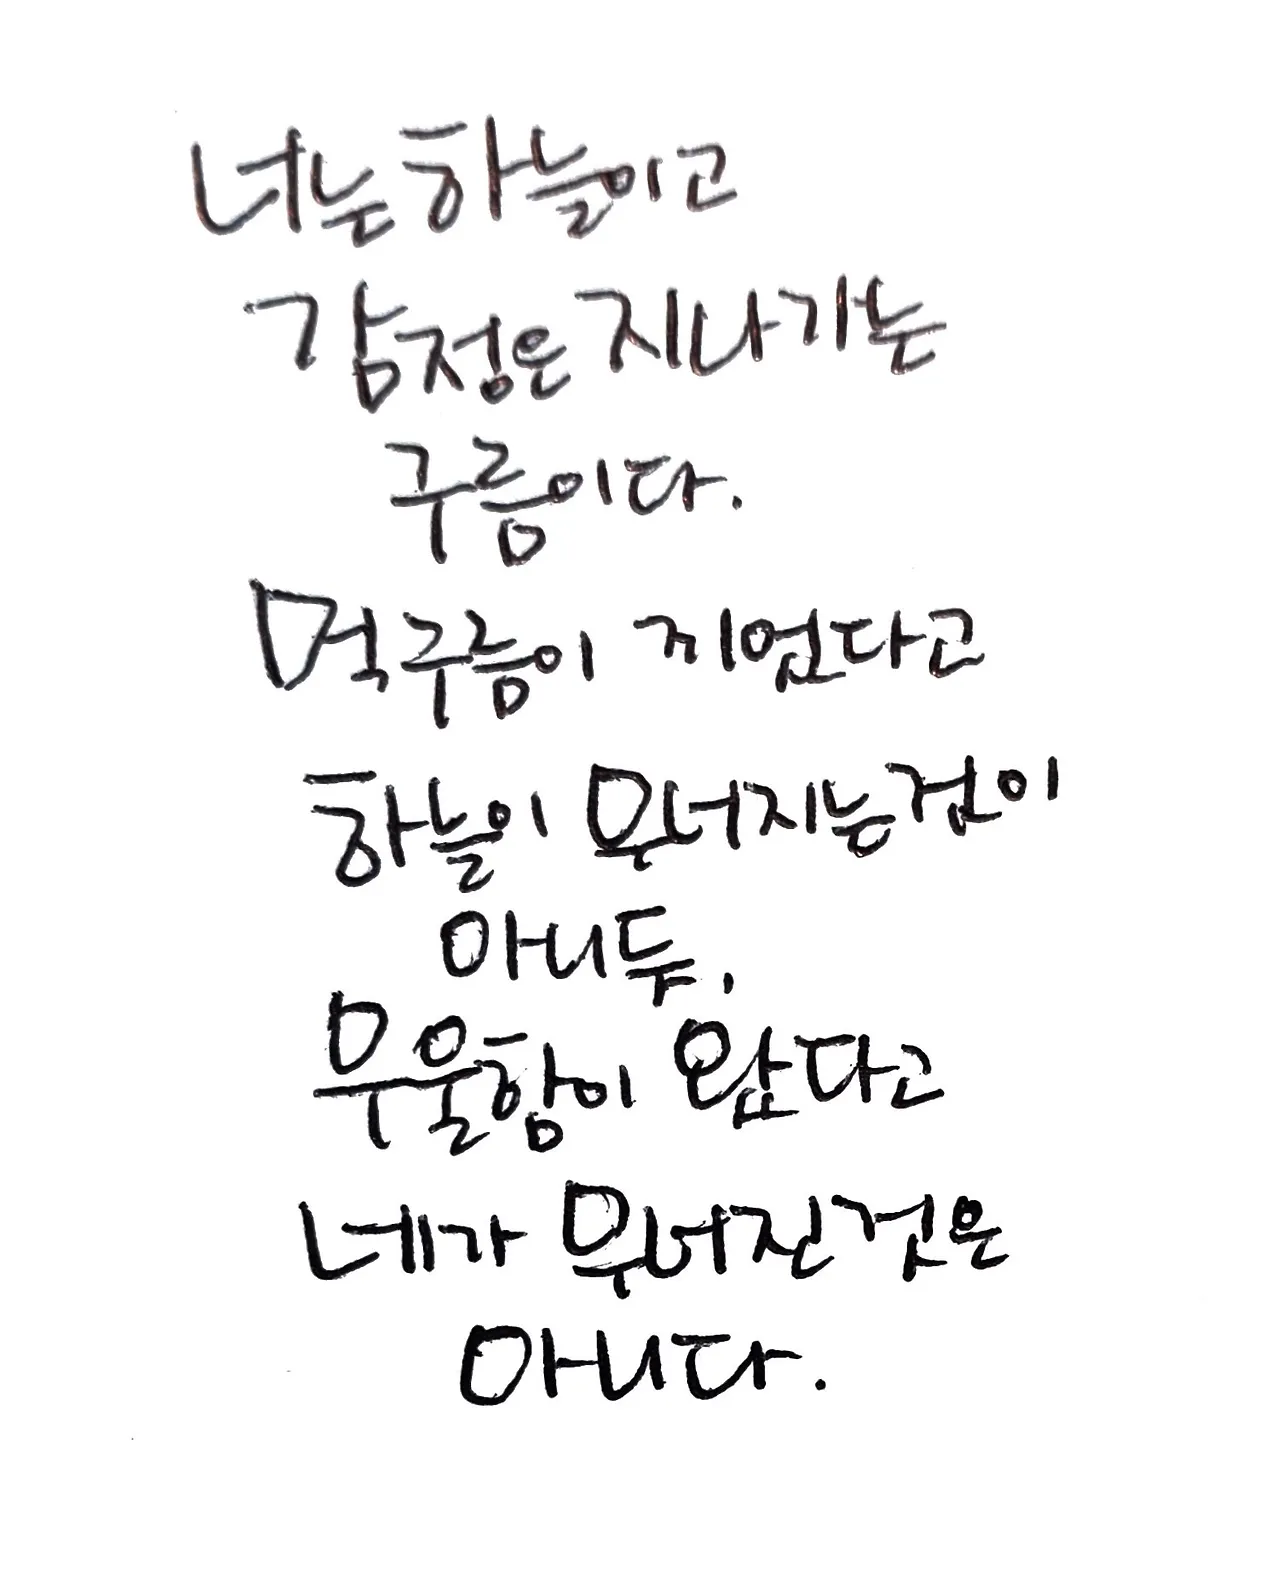 너는 하늘이고
감정은 지나가는
구름이다.
먹구름이 끼었다고
하늘이 무너지는 것이
아니듯,
우울함이 왔다고
네가 무너진 것은
아니다.